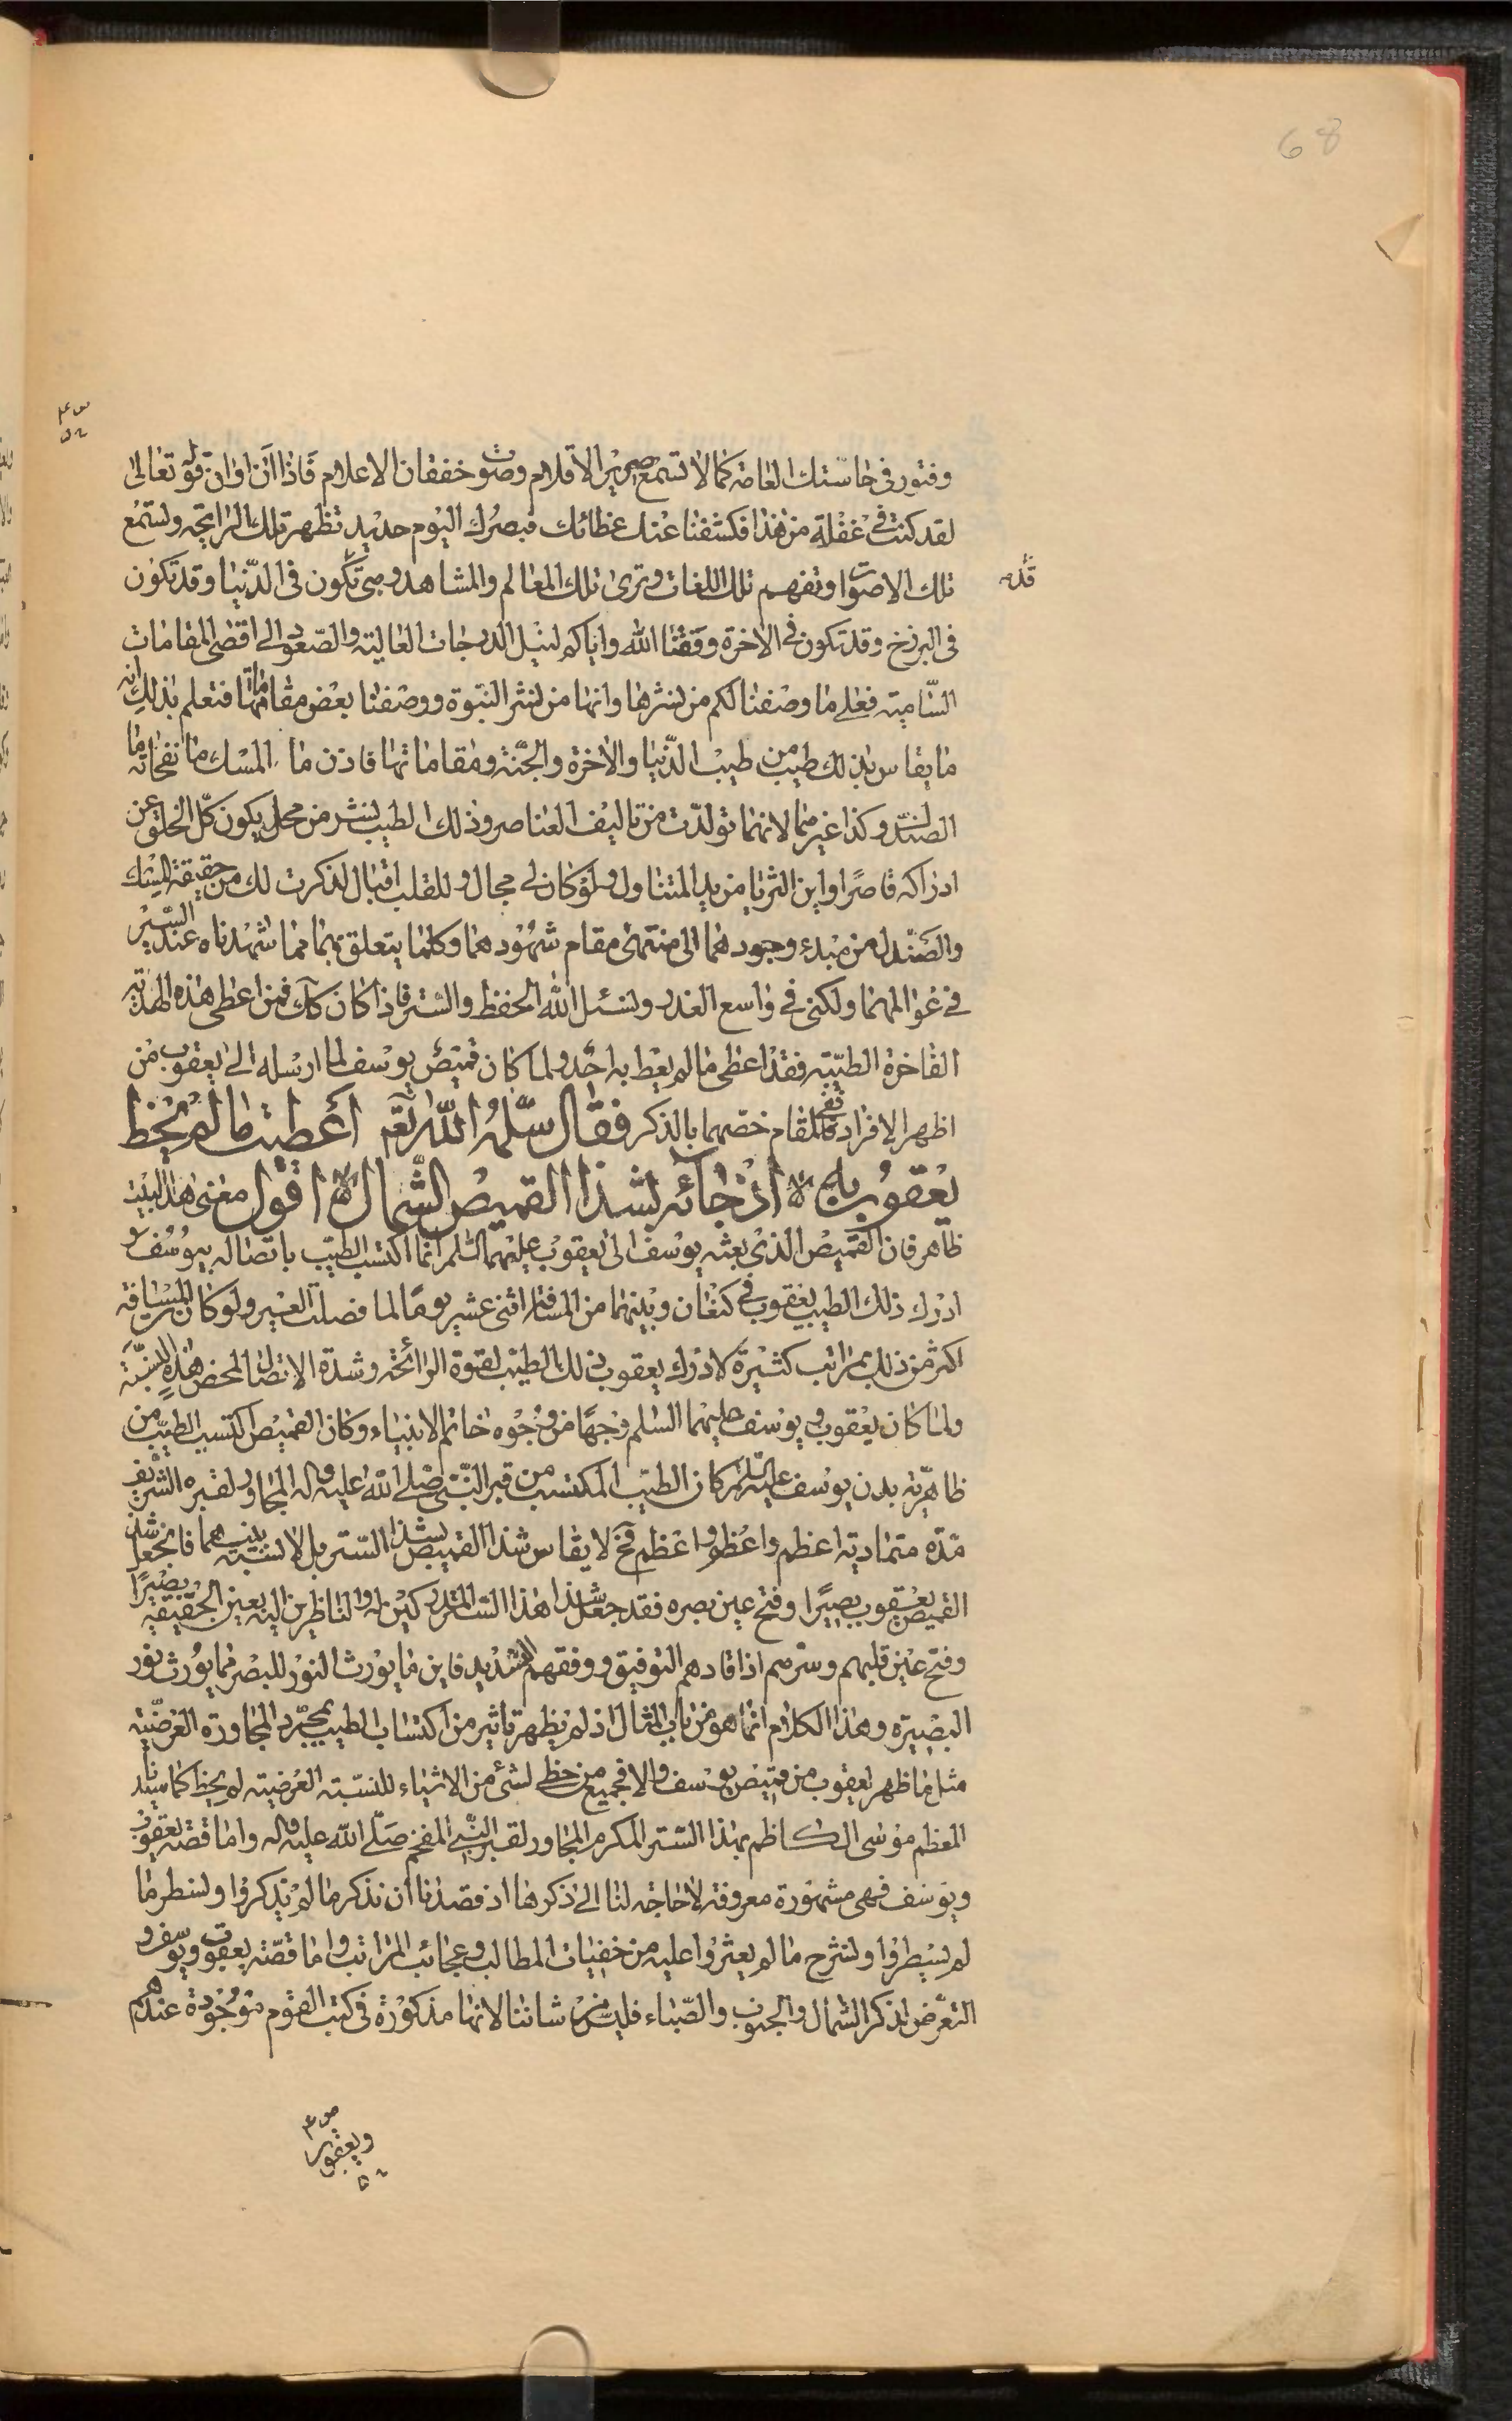 68
وفتور فى حاستك العامة كما لا تسمع صرير الاقلام وصوت خفقان الاعلام فاذا آن اوان قوله تعالى
لقد كنت فى غفلة من هذا فكشفنا عنك غطائك فبصرك اليوم حديد تظهر تلك الرايحة وتستمع
تلك الاصوات وتفهم تلك اللغات وترى تلك المعالم والمشاهد وهى قد تكون فى الدنيا وقد تكون
فى البرزخ وقد تكون فى الاخرة وفقنا الله واياكم لنيل الدرجات العالية والصعود الى اقصى المقامات
السامية فعلى ما وصفنا لكم من نشرها وانها من نشر النبوة ووصفنا بعض مقاماتها فتعلم بذلك انه
ما يقاس بذلك طيب من طيب الدنيا والاخرة والجنة ومقاماتها فاذن ما المسك ما نفحاته ما
الصندل وكذا غيرهما لانهما تولدت من تاليف العناصر وذلك الطيب نشر من محل يكون كل الخلق عن
ادراكه قاصرا واين الثريا من يد المتناول ولو كان لى مجال وللقلب اقبال لذكرت لك من حقيقة المسك
والصندل من مبدء وجودهما الى منتهى مقام شهودهما وكلما يتعلق بهما مما شهدناه عند السير
فى عوالمهما ولكنى فى واسع العذر ونسئل الله الحفظ والستر فاذا كان كك فمن اعطى هذه الهدية
الفاخرة الطيبة فقد اعطى ما لم يعط به احد ولما كان قميص يوسف لما ارسله الى يعقوب من
اظهر الافراد فى المقام خصهما بالذكر فقال سلمه الله تع اعطيت ما لم يحظ
يعقوب به اذ جائه بشذا القميص الشمال اقول معنى هذا البيت
ظاهر فان القميص الذى بعثه يوسف الى يعقوب عليهما السلم انما اكتسب الطيب باتصاله بيوسف و
ادرك ذلك الطيب يعقوب فى كنعان وبينهما من المسافة اثنى عشر يوما لما فصلت العير ولو كان المسافة
اكثر من ذلك بمراتب كثيرة لادرك يعقوب ذلك الطيب لقوة الرائحة وشدة الاتصال لمحض هذه النسبة
ولما كان يعقوب ويوسف عليهما السلم وجها من وجوه خاتم الانبياء وكان القميص اكتسب الطيب من
ظاهرية بدن يوسف عليه السلم كان الطيب المكتسب من قبر النبى صلى الله عليه واله المجاور لقبره الشريف
مدة متمادية اعظم واعظم واعظم فح لا يقاس شذا القميص بشذا الستر بل لا نسبة بينهما فان جعل شذا
القميص يعقوب بصيرا وفتح عين بصره فقد جعل شذا هذا الستر المتبركين له والناظرين اليه بعين الحقيقة بصيرا
وفتح عين قلبهم وسرهم اذا قادهم التوفيق ووفقهم التسديد فاين ما يورث النور للبصر مما يورث نور
البصيرة وهذا الكلام انما هو من باب المثال اذ لم يظهر تاثير من اكتساب الطيب بمجرد المجاورة العرضية
مثل ما ظهر ليعقوب من قميص يوسف والا فجميع من حظى لشئ من الاشياء للنسبة العرضية لم يحظ كما سيدنا
المعظم موسى الكاظم بهذا الستر المكرم المجاور لقبر النبى المفخم صلى الله عليه واله واما قصة يعقوب
ويوسف فهى مشهورة معروفة لا حاجة لنا الى ذكرها اذ قصدنا ان نذكر ما لم يذكروا ونسطر ما
لم يسطروا ونشرح ما لم يعثروا عليه من خفيات المطالب وعجائب المراتب واما قصة يعقوب ويوسف و
التعرض لذكر الشمال والجنوب والصباء فليس من شاننا لانها مذكورة فى كتب القوم موجودة عندهم